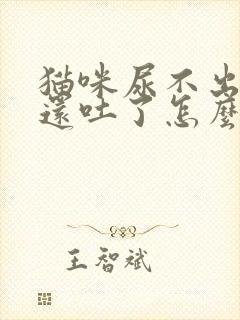 猫咪尿不出
還吐了怎麼
王智斌